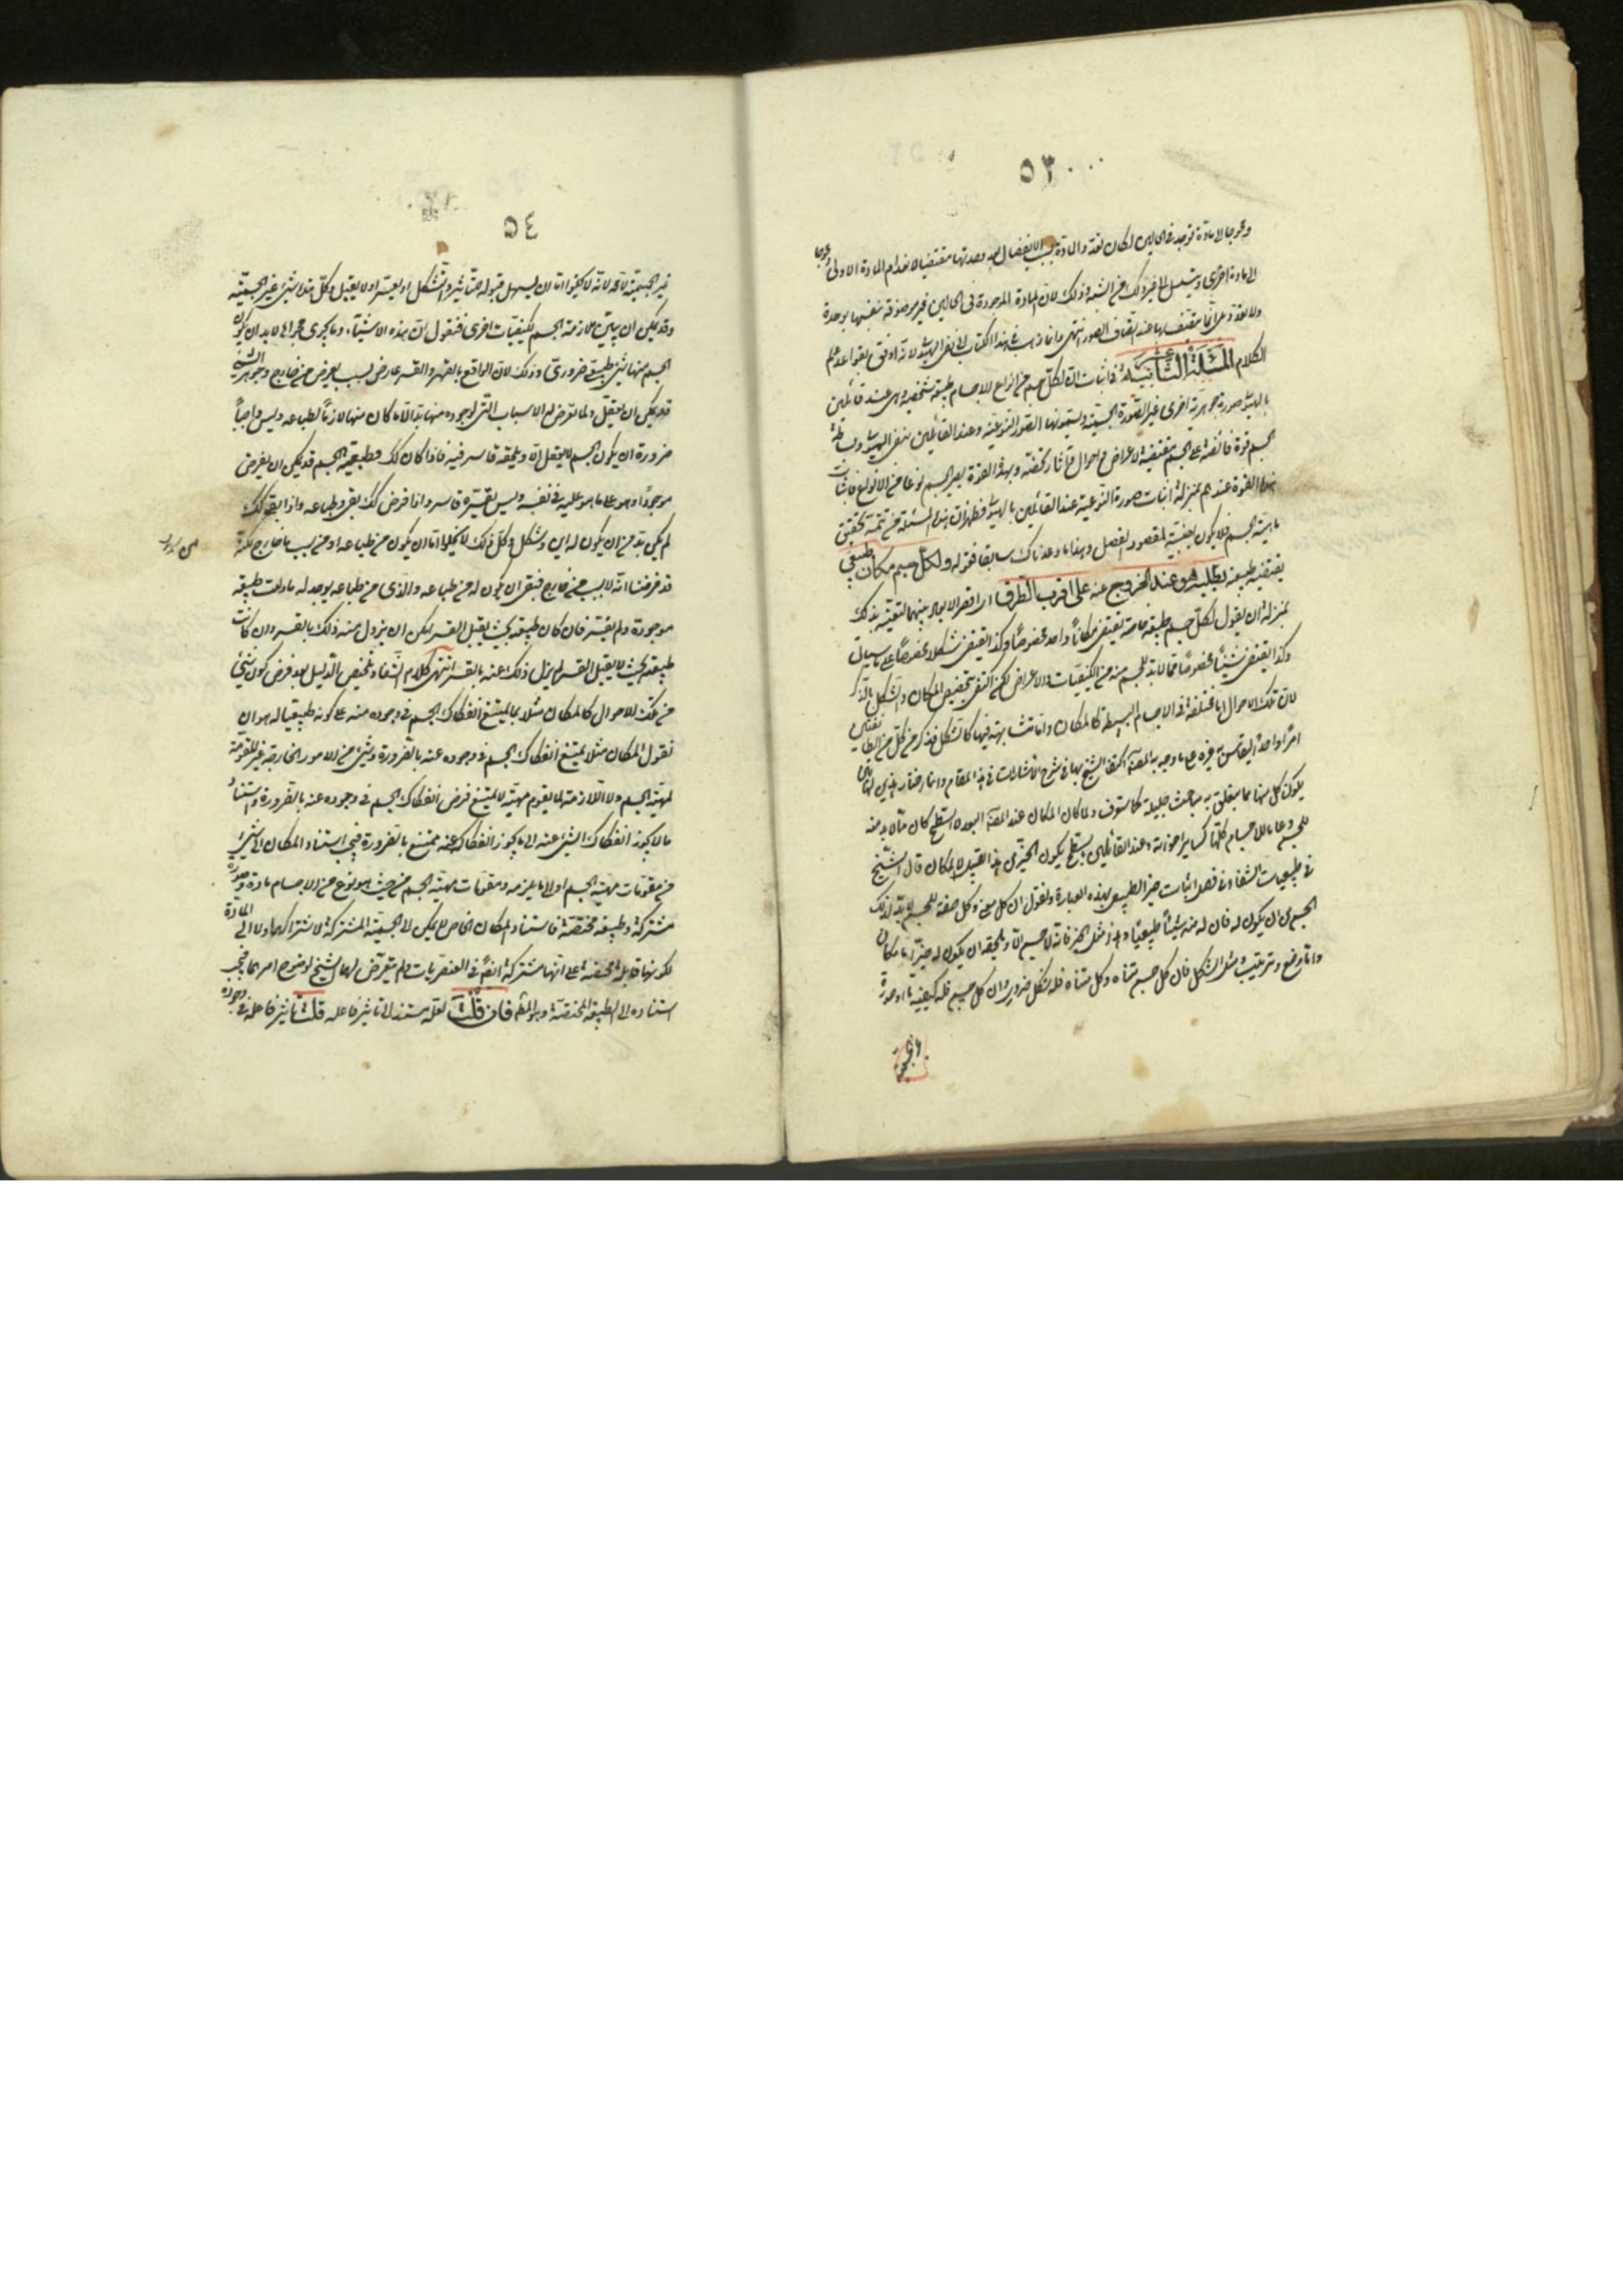 ٥٣
ومحوجا الى مادة توجد فى الحالين لكان تعدد المادة بسبب الانفصال بعد وحدتها مقتضيا لانعدام المادة الاولى ومحوجا
الى مادة اخرى ويتسلسل الى غير ذلك من الشبه وذلك لان المادة الموجودة فى الحالين غير موصوفة بنفسها بوحدة
ولا تعدد على انما يتصف بها عند اتصاف الصور انتهى وانما ذهب فى هذا الكتاب الى نفى الهيولى لانه اوفق بقواعد علم
الكلام المسئلة الثانية فى اثبات ان لكل جسم من انواع الاجسام طبيعة شخصية وهى عند قائلين
بالهيولى صورة جوهرية اخرى غير الصورة الجسمية ويسمونها الصور النوعية وعند القائلين بنفى الهيولى وبساطة
الجسم قوة فائضة على الجسم مقتضية لاعراض واحوال وآثار مختصة وبهذه القوة يصير الجسم نوعا من الانواع فاثبات
هذه القوة عندهم بمنزلة اثبات صورة النوعية عند القائلين بالهيولى فظهر ان هذه المسئلة من تتمة تحقيق
ماهية الجسم فلا يكون اجنبية لمقصود الفصل وهذا ما وعدناك سابقا فقوله ولكل جسم مكان طبيعى
يقتضيه طبيعته يطلبه هو عند الخروج عنه على اقرب الطرق اى اقصر الابعاد بينهما لتعينه بذلك
بمنزلة ان يقول لكل جسم طبيعة خاصة تقتضى مكانا واحدا مخصوصا وكذا تقتضى شكلا مخصوصا على ما سياتى
وكذا تقتضى شيئا مخصوصا مما لابد للجسم منه من الكيفيات والاعراض لكنه اكتفى بتخصيص المكان والشكل بالذكر
لان تلك الاحوال اما مختلفة فى الاجسام البسيطة كالمكان واما متشابهة فيها كالشكل فذكر من كل من الطائفتين
امرا واحدا ليقاس به غيره على ما وجه به المصنف اكتفاء الشيخ بهما فى شرح الاشارات فى هذا المقام وانما اختار هذين لما
يكون كل منهما مما يتعلق به مباحث جليلة كما ستقف ولما كان المكان عند المصنف البعد لا السطح كان مما لابد منه
للجسم وعاما للاجسام كلها كسائر اخواته وعند القائلين بالسطح يكون الحيز من هذا القبيل لا المكان قال الشيخ
فى طبيعيات الشفاء فى فصل اثبات حيز الطبيعى بهذه العبارة ونقول ان كل معنى وكل صفة للجسم لابد لذلك
الجسم من ان يكون له فان له منه شيئا طبيعيا وهذا مثل الحيز فانه لا جسم الا ويلحقه ان يكون له حيز اما مكان
واما وضع وترتيب ومثل الشكل فان كل جسم متناه وكل متناه فله شكل ضرورة وان كل جسم فله كيفية ما او صورة
٥٤
غير الجسمية لا محالة لانه لا يخلو اما ان يسهل قبوله للتاثير والتشكل او يعسر او لا يقبل وكل هذا شىء غير الجسمية
وقد يمكن ان يبين ملازمة الجسم لكيفيات اخرى فنقول ان هذه الاشياء وما يجرى مجراها لابد ان يكون
للجسم منها شىء طبيعى ضرورى وذلك لان الواقع بالقهر والقسر عارض بسبب يعرض من خارج وجوهر الشىء
قد يمكن ان يعقل ولما تعرض له الاسباب التى لوجوده منها بد الا ما كان منها لازما لطباعه وليس واجبا
ضرورة ان يكون الجسم لا يعقل الا ويلحقه قاسر فيه فاذا كان كذلك فطبيعة الجسم قد يمكن ان يفرض
موجودا وهو على ما هو عليه فى نفسه وليس يقسره قاسر واذا فرض كذلك بقى وطباعه واذا بقى كذلك
لم يكن بد من ان يكون له اين وشكل وكل ذلك لا يخلو اما ان يكون من طباعه او من سبب من خارج لكنه
قد فرضنا انه لا سبب من خارج فبقى ان يكون له من طباعه والذى من طباعه يوجد له ما دامت طبيعته
موجودة ولم يقسر فان كان طبيعته بحيث يقبل القسر امكن ان يزول عنه ذلك بالقسر وان كانت
طبيعته بحيث لا يقبل القسر لم يزل ذلك عنه بالقسر انتهى كلام الشفاء وتلخيص الدليل بعد فرض كون شىء
من تلك الاحوال كالمكان مثلا مما يمتنع انفكاك الجسم فى وجوده منه على كونه طبيعيا له هو ان
نقول المكان مثلا يمتنع انفكاك الجسم فى وجوده عنه بالضرورة وشىء من الامور الخارجة غير المقومة
لمهية الجسم ولا اللازمة لما يقوم مهيته لا يمتنع فرض انفكاك الجسم فى وجوده عنه بالضرورة واستناد
ما لا يجوز انفكاك الشىء عنه الى ما يجوز انفكاكه عنه ممتنع بالضرورة فيجب استناد المكان الى شىء
من مقومات مهية الجسم او الى ما يلزمه ومقومات مهية الجسم من حيث هو نوع من الاجسام مادة وصورة
مشتركة وطبيعة مختصة فاستناد المكان الخاص لا يمكن الى الجسمية المشتركة لاشتراكها ولا الى المادة
لكونها قابلة محضة على انها مشتركة ايضا فى العنصريات ولم يتعرض لهما الشيخ لوضوح امرهما فيجب
استناده الى الطبيعة المختصة وهو المط فان قلت لعله مستند الى تاثير فاعله قلت تاثير فاعله فى وجوده